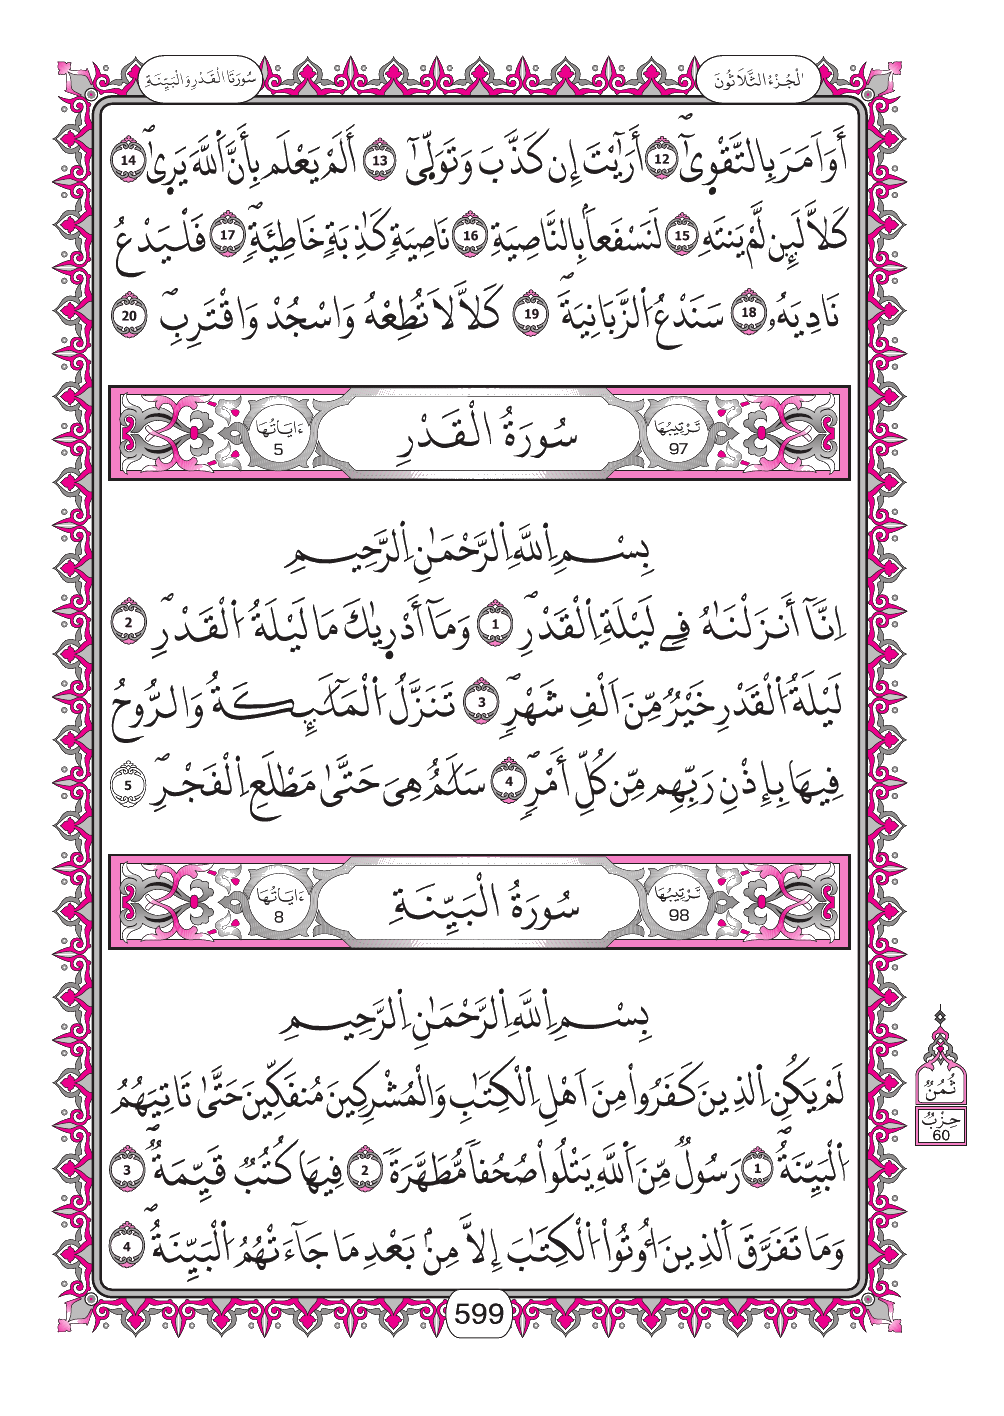 الْجُزْءُ الثَّلَاثُونَ
سُورَتَا الْقَدْرِ وَالْبَيِّنَةِ
أَوَ اَمَرَ بِالتَّقْو۪ىٰٓۖ 12 أَرَٰٓيْتَ إِن كَذَّبَ وَتَوَلّ۪ىٰٓ 13 أَلَمْ يَعْلَم بِأَنَّ اَ۬للَّهَ يَر۪ىٰۖ 14
كَلَّا لَئِن لَّمْ يَنتَهِ 15 لَنَسْفَعاَۢ بِالنَّاصِيَةِ 16 نَاصِيَةٖ كَٰذِبَةٍ خَاطِئَةٖۖ 17 فَلْيَدْعُ
نَادِيَهُۥ 18 سَنَدْعُ اُ۬لزَّبَانِيَةَۖ 19 كَلَّا لَا تُطِعْهُ وَاسْجُدْ وَاقْتَرِبۖ 20
تَرْتِيبُهَا 97
سُورَةُ الْقَدْرِ
ءَايَاتُهَا 5
بِسْمِ اِ۬للَّهِ اِ۬لرَّحْمَٰنِ اِ۬لرَّحِيمِ
اِنَّآ أَنزَلْنَٰهُ فِے لَيْلَةِ اِ۬لْقَدْرِۖ 1 وَمَآ أَدْر۪يٰكَ مَا لَيْلَةُ اُ۬لْقَدْرِۖ 2
لَيْلَةُ اُ۬لْقَدْرِ خَيْرٞ مِّنَ اَلْفِ شَهْرٖۖ 3 تَنَزَّلُ اُ۬لْمَلَٰٓئِكَةُ وَالرُّوحُ
فِيهَا بِإِذْنِ رَبِّهِم مِّن كُلِّ أَمْرٖۖ 4 سَلَٰمٌ هِيَ حَتَّىٰ مَطْلَعِ اِ۬لْفَجْرِۖ 5
تَرْتِيبُهَا 98
سُورَةُ الْبَيِّنَةِ
ءَايَاتُهَا 8
بِسْمِ اِ۬للَّهِ اِ۬لرَّحْمَٰنِ اِ۬لرَّحِيمِ
لَمْ يَكُنِ اِ۬لذِينَ كَفَرُواْ مِنَ اَهْلِ اِ۬لْكِتَٰبِ وَالْمُشْرِكِينَ مُنفَكِّينَ حَتَّىٰ تَاتِيَهُمُ
ثُمُنٌ
حِزْبٌ
60
اُ۬لْبَيِّنَةُۖ 1 رَسُولٞ مِّنَ اَ۬للَّهِ يَتْلُواْ صُحُفاٗ مُّطَهَّرَةٗۖ 2 فِيهَا كُتُبٞ قَيِّمَةٞۖ 3
وَمَا تَفَرَّقَ اَ۬لذِينَ أُوتُواْ اُ۬لْكِتَٰبَ إِلَّا مِنۢ بَعْدِ مَا جَآءَتْهُمُ اُ۬لْبَيِّنَةُۖ 4
599